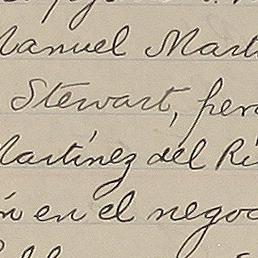 Manuel Mart
Stewart, per
Martínez del Rí
ón en el negoc